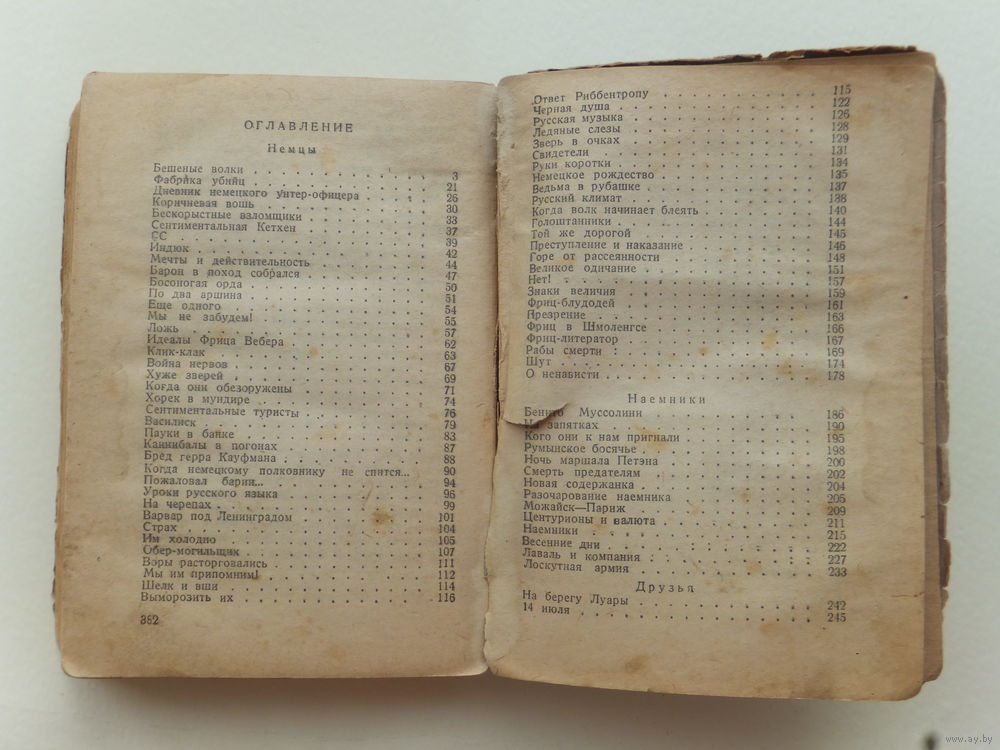 ОГЛАВЛЕНИЕ
Немцы
Бешеные волки . . . 3
Фабрика убийц . . . 21
Дневник немецкого унтер-офицера . . . 26
Коричневая вошь . . . 30
Бескорыстные взломщики . . . 33
Сентиментальная Кетхен . . . 37
СС . . . 39
Индюк . . . 42
Мечты и действительность . . . 44
Барон в поход собрался . . . 47
Босоногая орда . . . 50
По два аршина . . . 51
Еще одного . . . 54
Мы не забудем! . . . 55
Ложь . . . 57
Идеалы Фрица Вебера . . . 62
Клик-клак . . . 63
Война нервов . . . 67
Хуже зверей . . . 69
Когда они обезоружены . . . 71
Хорек в мундире . . . 74
Сентиментальные туристы . . . 76
Василиск . . . 79
Пауки в банке . . . 83
Каннибалы в погонах . . . 87
Бред герра Кауфмана . . . 88
Когда немецкому полковнику не спится... 90
Пожаловал барин... . . . 94
Уроки русского языка . . . 96
На черепах . . . 99
Варвар под Ленинградом . . . 101
Страх . . . 104
Им холодно . . . 105
Обер-могильщик . . . 107
Воры расторговались . . . 111
Мы им припомним! . . . 112
Шелк и вши . . . 114
Выморозить их . . . 116
382
Ответ Риббентропу . . . 115
Черная душа . . . 122
Русская музыка . . . 126
Ледяные слезы . . . 128
Зверь в очках . . . 129
Свидетели . . . 131
Руки коротки . . . 134
Немецкое рождество . . . 135
Ведьма в рубашке . . . 137
Русский климат . . . 138
Когда волк начинает блеять . . . 140
Голоштанники . . . 144
Той же дорогой . . . 145
Преступление и наказание . . . 146
Горе от рассеянности . . . 148
Великое одичание . . . 151
Нет! . . . 157
Знаки величия . . . 159
Фриц-блудодей . . . 161
Презрение . . . 163
Фриц в Шмоленгсе . . . 166
Фриц-литератор . . . 167
Рабы смерти . . . 169
Шут . . . 174
О ненависти . . . 178
Наемники
Бенито Муссолини . . . 186
На запятках . . . 190
Кого они к нам пригнали . . . 195
Румынское босячье . . . 198
Ночь маршала Петэна . . . 200
Смерть предателям . . . 202
Новая содержанка . . . 204
Разочарование наемника . . . 205
Можайск—Париж . . . 209
Центурионы и валюта . . . 211
Наемники . . . 215
Весенние дни . . . 222
Лаваль и компания . . . 227
Лоскутная армия . . . 233
Друзья
На берегу Луары . . . 242
14 июля . . . 245
www.ay.by